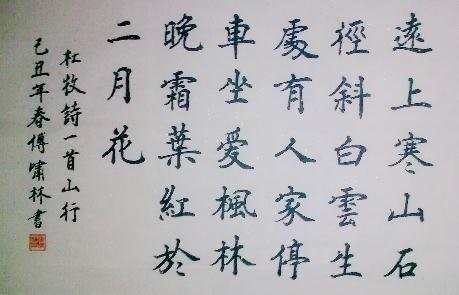 遠上寒山石
徑斜白雲生
處有人家停
車坐愛楓林
晚霜葉紅於
二月花
杜牧詩一首山行
己丑年春傅嘯林書